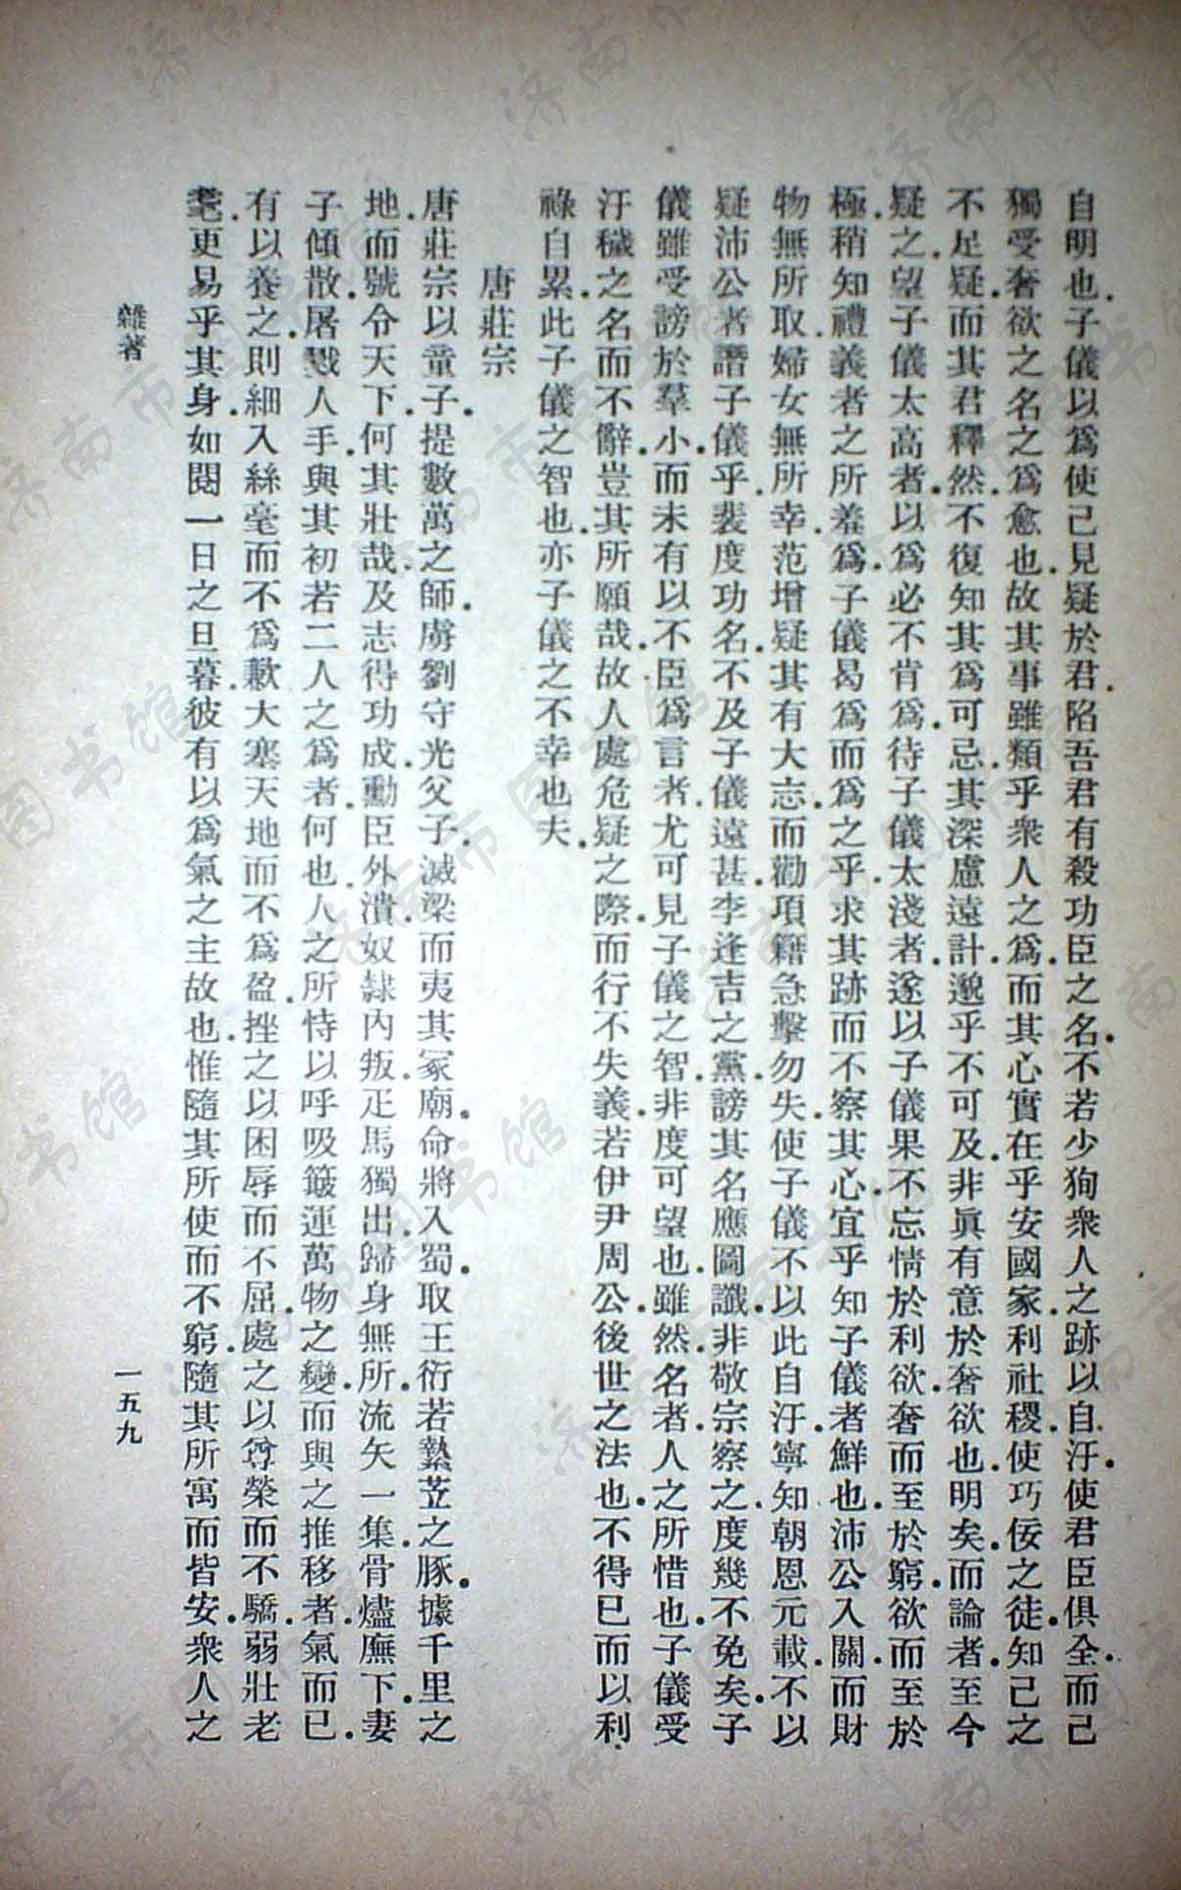 自明也.子儀以爲使己見疑於君.陷吾君有殺功臣之名.不若少狥衆人之跡以自汙.使君臣俱全.而己
獨受奢欲之名之爲愈也.故其事雖類乎衆人之爲.而其心實在乎安國家.利社稷.使巧佞之徒.知己之
不足疑.而其君釋然.不復知其爲可忌.其深慮遠計.邈乎不可及.非眞有意於奢欲也.明矣.而論者至今
疑之.望子儀太高者.以爲必不肯爲.待子儀太淺者.遂以子儀果不忘情於利欲.奢而至於窮.欲而至於
極.稍知禮義者之所羞爲.子儀曷爲而爲之乎.求其跡而不察其心.宜乎知子儀者鮮也.沛公入關.而財
物無所取.婦女無所幸.范增疑其有大志.而勸項籍急擊勿失.使子儀不以此自汙.寧知朝恩元載.不以
疑沛公者譖子儀乎.裴度功名.不及子儀遠甚.李逢吉之黨.謗其名應圖讖.非敬宗察之.度幾不免矣.子
儀雖受謗於羣小.而未有以不臣爲言者.尤可見子儀之智.非度可望也.雖然.名者.人之所惜也.子儀受
汙穢之名而不辭.豈其所願哉.故人處危疑之際.而行不失義.若伊尹周公.後世之法也.不得已而以利
祿自累.此子儀之智也.亦子儀之不幸也夫.
唐莊宗
唐莊宗以童子.提數萬之師.虜劉守光父子.滅梁而夷其冢廟.命將入蜀.取王衍若縶苙之豚.據千里之
地.而號令天下.何其壯哉.及志得功成.勳臣外潰.奴隸內叛.疋馬獨出.歸身無所.流矢一集.骨燼廡下.妻
子傾散.屠戮人手.與其初若二人之爲者.何也.人之所恃以呼吸簸運萬物之變.而與之推移者.氣而已.
有以養之.則細入絲毫而不爲歉.大塞天地而不爲盈.挫之以困辱而不屈.處之以尊榮而不驕.弱壯老
耄.更易乎其身.如閱一日之旦暮.彼有以爲氣之主故也.惟隨其所使而不窮.隨其所寓而皆安.衆人之
雜著
一五九